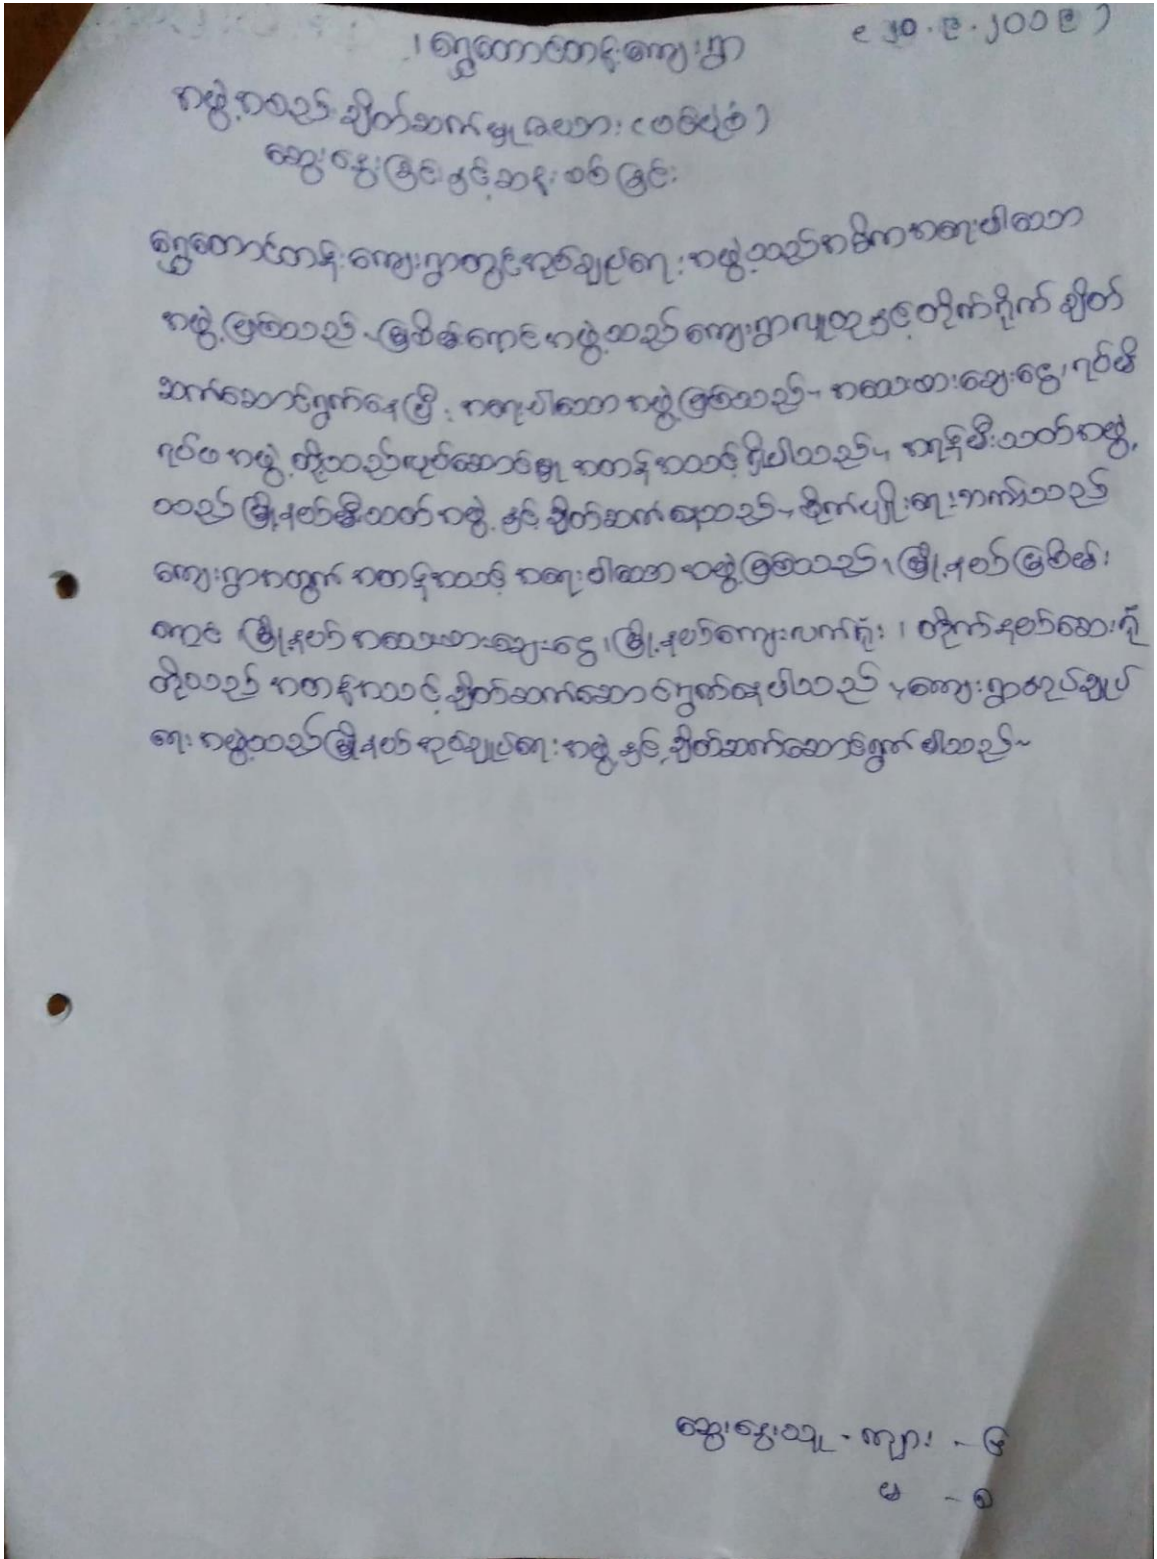 ( ၂၀.၉.၂၀၁၉ )
ရွှေတောင်တန်းကျေးရွာ
အဖွဲ့အစည်းချိတ်ဆက်မှုအလား (ဗင်ပုံစံ)
ဆွေးနွေးခြင်းနှင့်ဆန်းစစ်ခြင်း
ရွှေတောင်တန်းကျေးရွာတွင်အုပ်ချုပ်ရေးအဖွဲ့သည်အဓိကအရေးပါသော
အဖွဲ့ဖြစ်သည်။ မြစိမ်းရောင်အဖွဲ့သည်ကျေးရွာလူထုနှင့်တိုက်ရိုက်ချိတ်
ဆက်ဆောင်ရွက်နေပြီး အရေးပါသောအဖွဲ့ဖြစ်သည်။ အသေးစားချေးငွေ၊ ရပ်မိ
ရပ်ဖအဖွဲ့တို့သည်လုပ်ဆောင်မှုအတန်အသင့်ရှိပါသည်။ အရန်မီးသတ်အဖွဲ့
သည်မြို့နယ်မီးသတ်အဖွဲ့နှင့်ချိတ်ဆက်ရသည်။ စိုက်ပျိုးရေးဘဏ်သည်
ကျေးရွာအတွက်အတန်အသင့်အရေးပါသောအဖွဲ့ဖြစ်သည်။ မြို့နယ်မြစိမ်း
ရောင် မြို့နယ်အသေးစားချေးငွေ၊ မြို့နယ်ကျေးလက်ရုံး၊ တိုက်နယ်ဆေးရုံ
တို့သည်အတန်အသင့်ချိတ်ဆက်ဆောင်ရွက်နေပါသည်။ ကျေးရွာအုပ်ချုပ်
ရေးအဖွဲ့သည်မြို့နယ်အုပ်ချုပ်ရေးအဖွဲ့နှင့်ချိတ်ဆက်ဆောင်ရွက်ပါသည်။
ဆွေးနွေးသူ - ကျား - ၆
မ - ၅